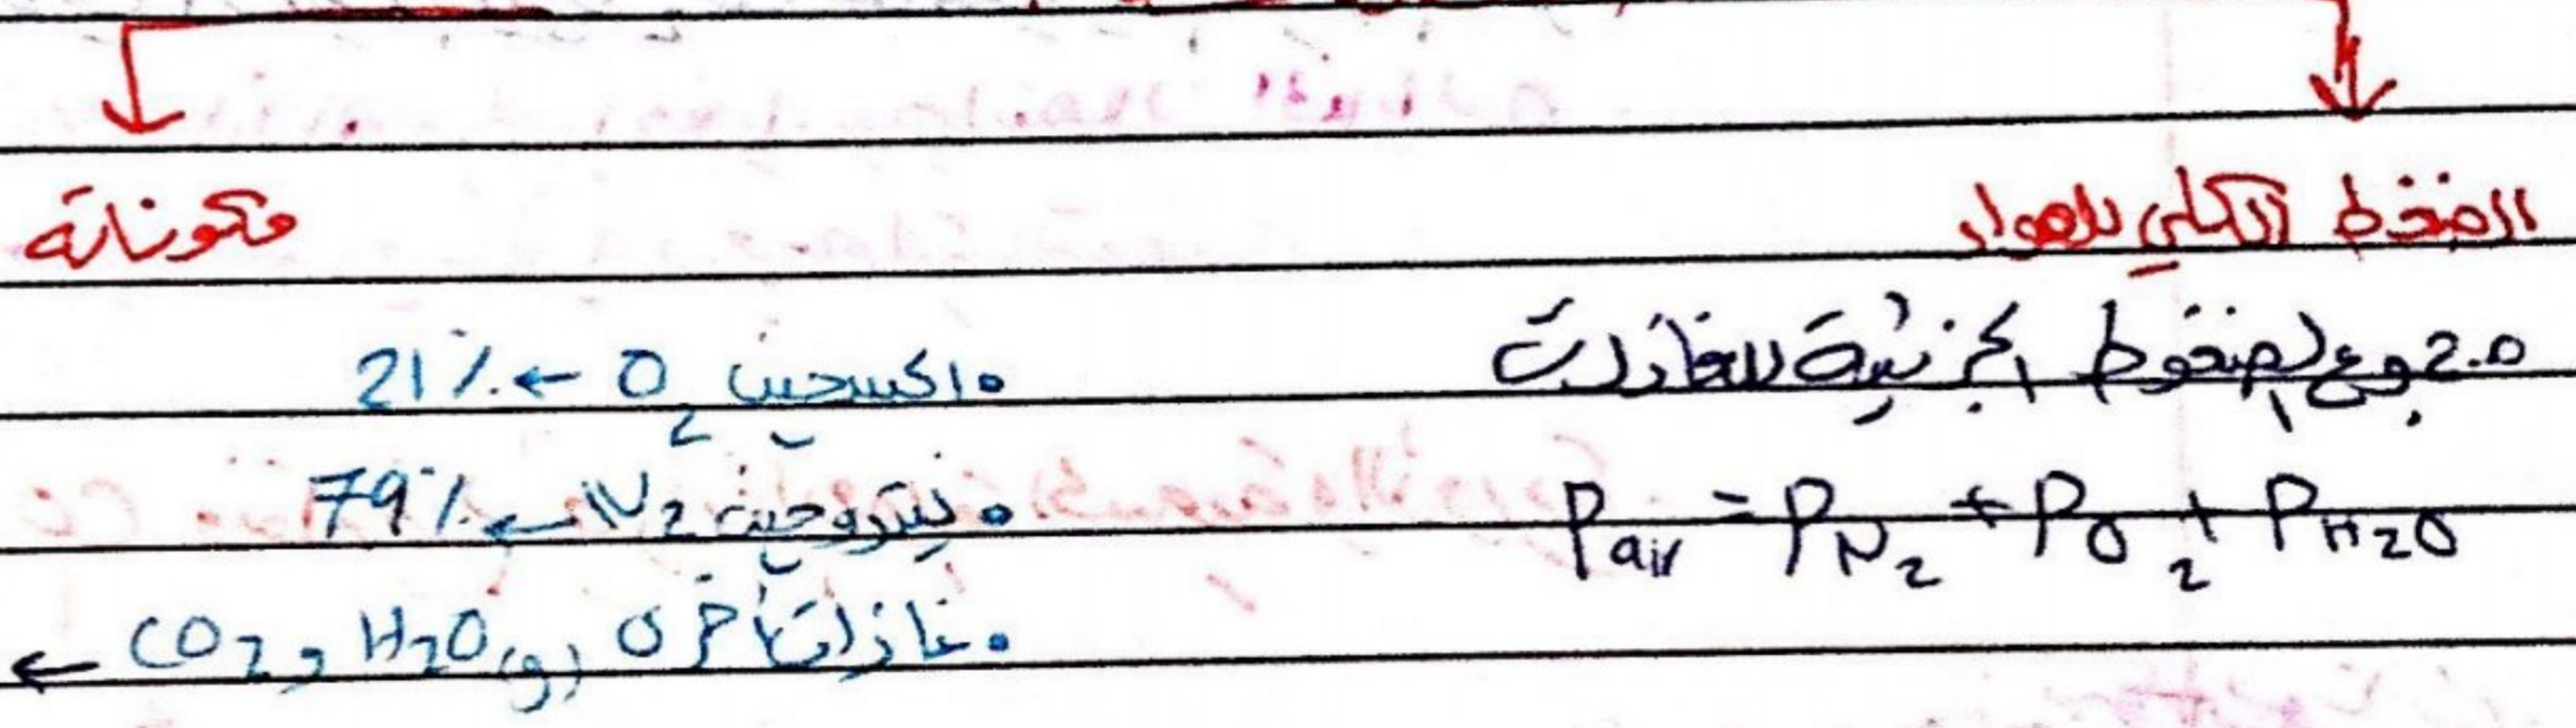 الضغط الكلي للهواء
مجموع الضغوط الجزئية للغازات
Pair = PN2 + PO2 + PH2O
مكوناته
• اكسجين O2 ← 21%
• نيتروجين N2 ← 79%
• غازات أخرى CO2, H2O(g) ←